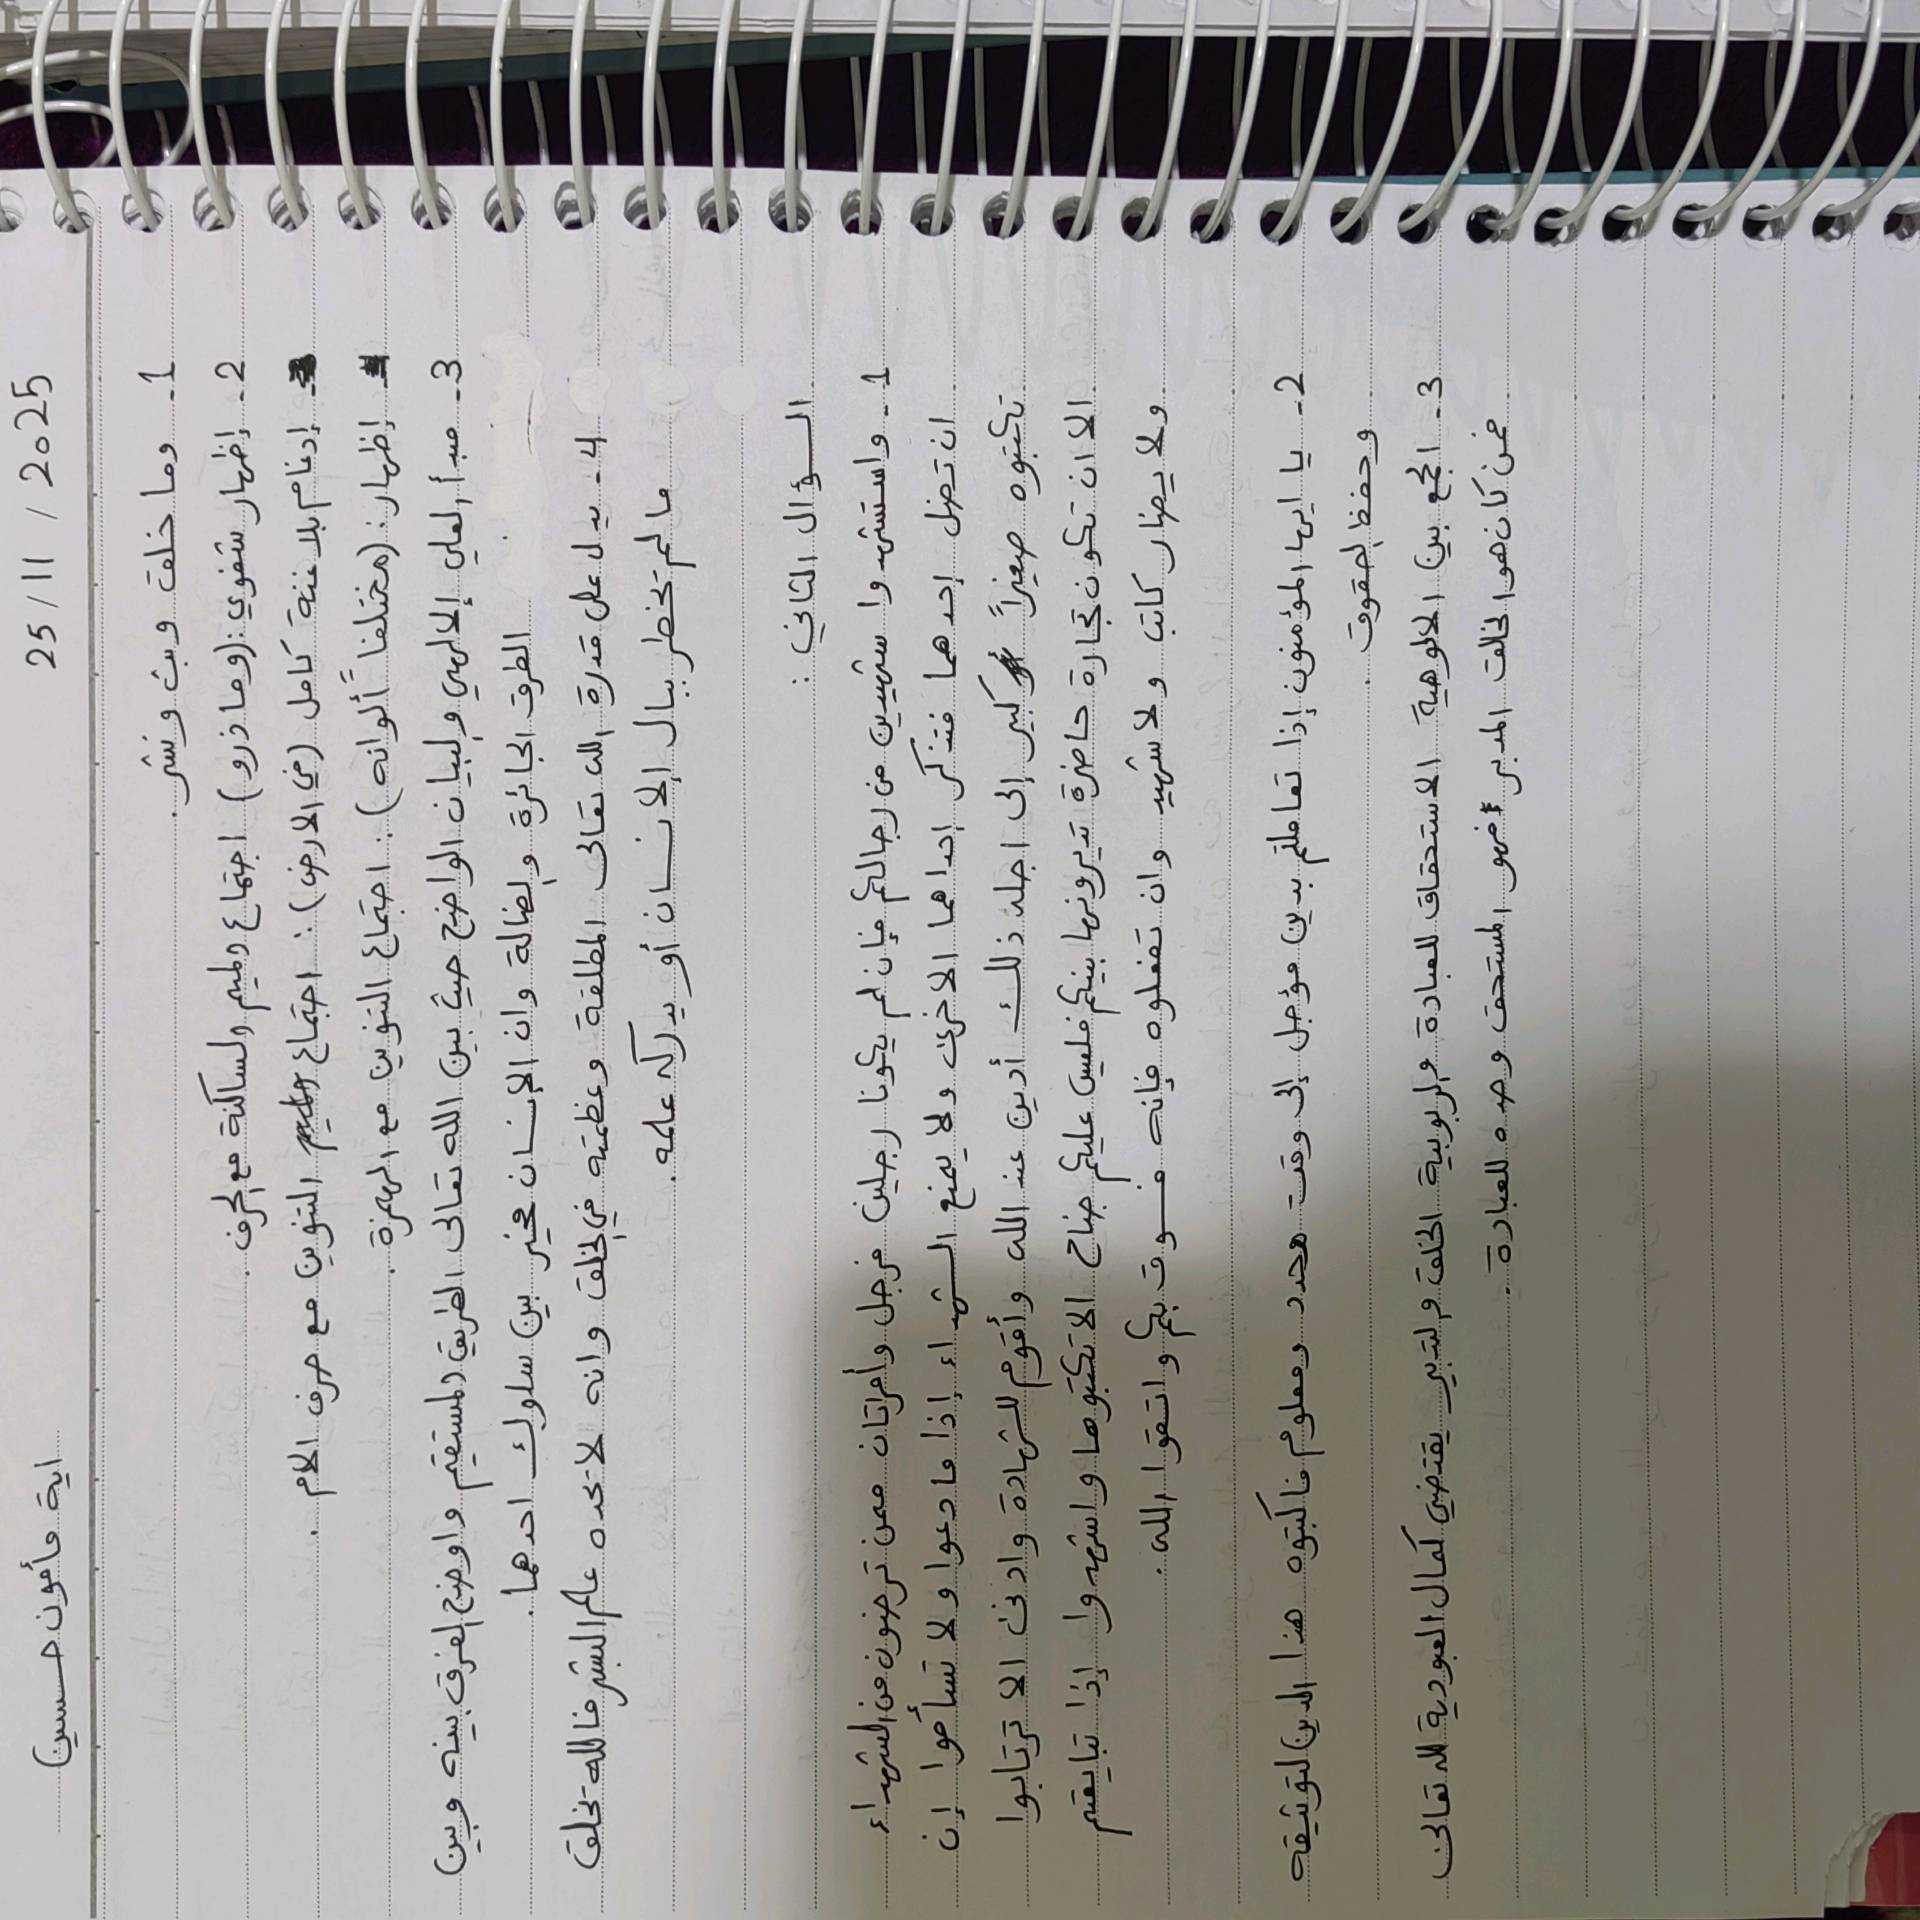 25/11/2025
اية مأمون حسين
1- وما خلق وبث ونشر.
2- إظهار شفوي: (وما ذرو) اجتماع الميم الساكنة مع الحرف.
- إدغام بلا غنة كامل (في الارض): اجتماع التنوين مع حرف الام.
- إظهار: (مختلفاً ألوانه): اجتماع التنوين مع الهمزة.
3- مبدأ العلم الالهي والبيان الواضح حيث بين الله تعالى الطريق المستقيم واوضح الفرق بينه وبين
الطرق الجائرة والضالة وان الإنسان مخير بين سلوك احدهما.
4- يدل على قدرة الله تعالى المطلقة وعظمته في الخلق وانه لا تحده علم البشر فالله خلق
مالم تخطر ببال الإنسان أو يدركه علمه.
السؤال الثاني:
1- واستشهدوا شهيدين من رجالكم فإن لم يكونا رجلين فرجل وأمراتان ممن ترضون من الشهداء
ان تضل إحدهما فتذكر إحداهما الاخرى ولا يمنع الشهداء إذا ما دعوا ولا تسأموا إن
تكتبوه صغيراً كبير إلى اجله ذلك أدين عند الله وأقوم للشهادة وادنى الا ترتابوا
الا ان تكون تجارة حاضرة تديرونها بينكم فليس عليكم جناح الا تكتبوها واشهدوا إذا تبايعتم
ولا يضار كاتب ولا شهيد وان تفعلوه فإنه فسوق بكم واتقوا الله.
2- يا ايها المؤمنون إذا تعاملتم بدين مؤجل إلى وقت محدد ومعلوم فاكتبوه هذا الدين لتوثيقه
وحفظ الحقوق.
3- الجمع بين الالوهية الاستحقاق للعبادة والربوبية الخلق والتدبير يقتضي كمال العبودية لله تعالى
فمن كان هو الخالق المدبر فهو المستحق وحده للعبادة.